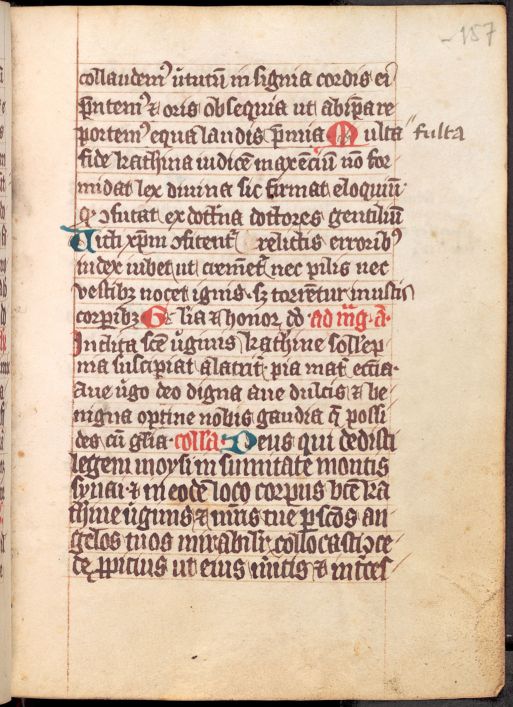 157
collaudem⁹ v̄tutū insignia cordis ei
p̄ntem⁹ ⁊ oris obsequia ut ab ip̄a re
portem⁹ equa laudis p̄mia Multa fulta
fide kath̓ina iudicē maxenciū nō for
midat lex diuina sic firmat eloquiū
qͥ ꝯfutat ex doct̓na doctores gentiliū
Victi xp̄m ꝯfitent̓ relictis errorib⁹
iudex iubet ut cremēt̓ nec pilis nec
vestibꝫ nocet ignis sꝫ torrentur inustis
corporibꝫ Gl̓ia ⁊ honor dō ad mḡ a̅
Inclita scē v̓ginis kath̓ine sollēp
nia suscipiat alacrit̓ pia mat̓ eccīa
Aue v̓go deo digna aue dulcis ⁊ be
nigna optine nobis gaudia q̄ possi
des cū gl̓ia coll̓a Deus qui dedisti
legem moysi in sūmitate montis
synai ⁊ in eodē loco corpus b̄tē ka
th̓ine v̓ginis ⁊ m̄ris tue ꝑ scōs an
gelos tuos mirabilit̓ collocasti ꝯce
de ꝓpicius ut eius m̓itis ⁊ int̓ces